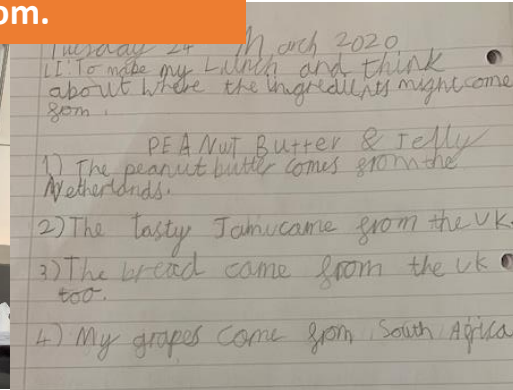 om.
Tuesday 24 March 2020
LI: To make my Lunch and think
about where the ingredients might come
from.
PEANUT Butter & Jelly
1) The peanut butter comes from the
Netherlands.
2) The tasty Jam came from the UK.
3) The bread came from the UK
too.
4) My grapes come from South Africa